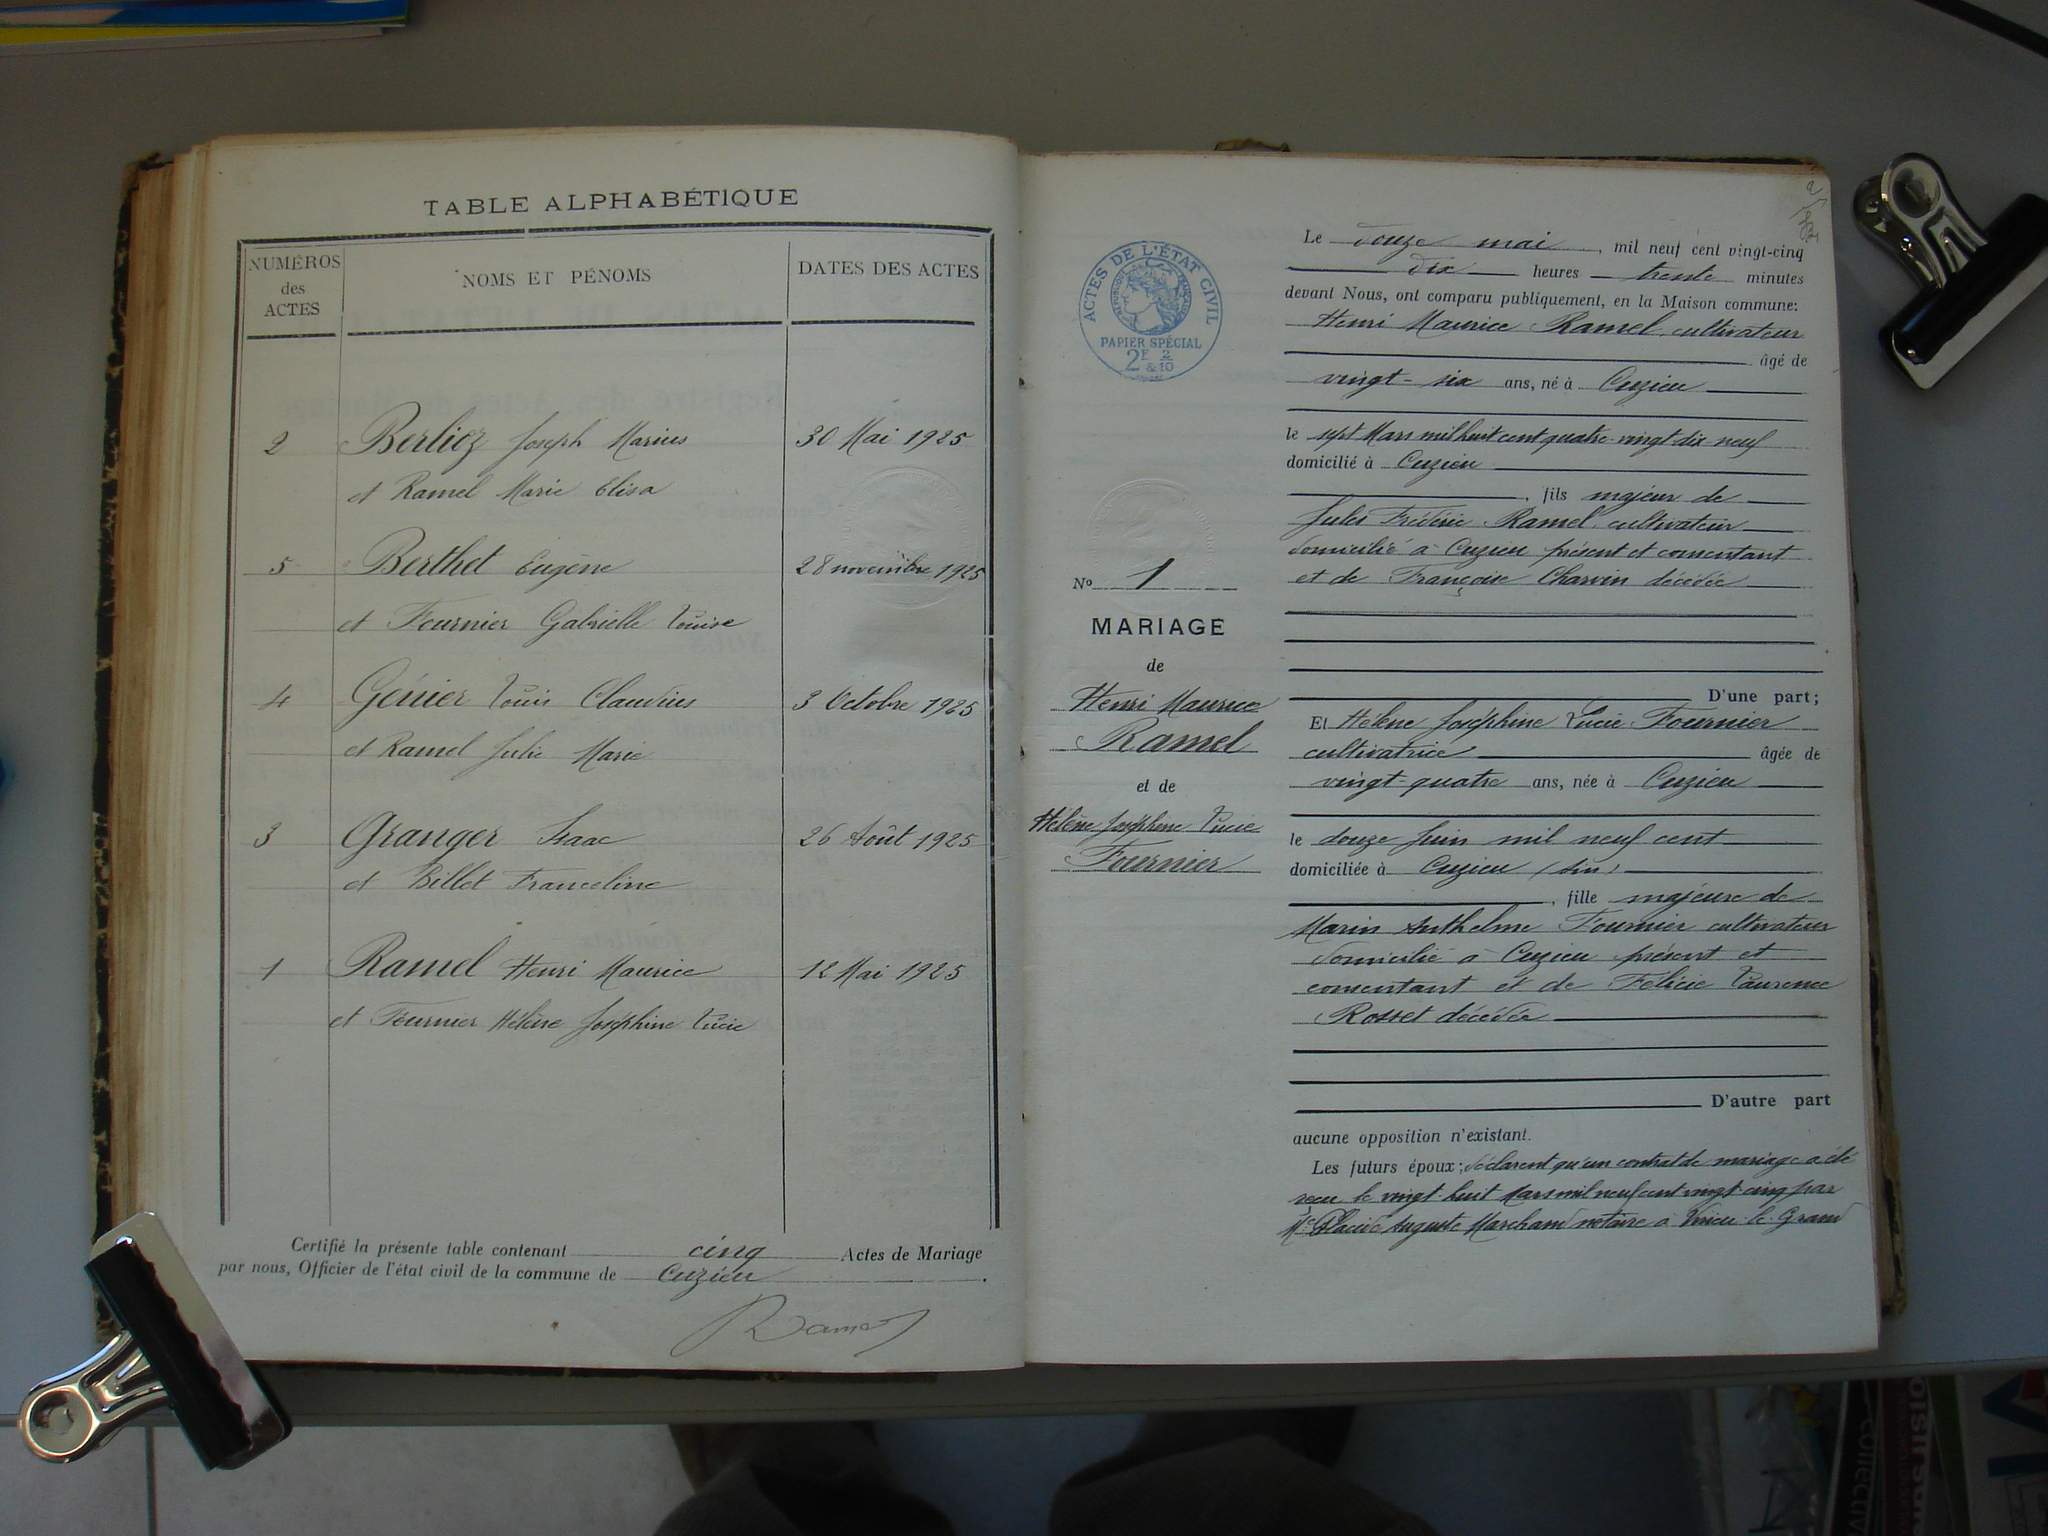 TABLE ALPHABÉTIQUE
NUMÉROS des ACTES
NOMS ET PÉNOMS
DATES DES ACTES
2 Berlioz Joseph Marius 30 Mai 1925
et Ramel Marie Elisa
5 Berthet Eugène 28 novembre 1925
et Fournier Gabrielle Louise
4 Génier Louis Claudius 3 Octobre 1925
et Ramel Julie Marie
3 Granger Isaac 26 Août 1925
et Billet Franceline
1 Ramel Henri Maurice 12 Mai 1925
et Fournier Hélène Joséphine Lucie
Certifié la présente table contenant cinq Actes de Mariage
par nous, Officier de l'état civil de la commune de Cuzieu.
ACTES DE L'ÉTAT CIVIL
PAPIER SPÉCIAL
2F 2
& 10
No 1
MARIAGE
de
Henri Maurice
Ramel
et de
Hélène Joséphine Lucie
Fournier
Le douze mai, mil neuf cent vingt-cinq
dix heures trente minutes
devant Nous, ont comparu publiquement, en la Maison commune:
Henri Maurice Ramel cultivateur
âgé de
vingt-six ans, né à Cuzieu
le sept Mars mil huit cent quatre-vingt-dix-neuf
domicilié à Cuzieu
, fils majeur de
Jules Frédéric Ramel cultivateur
domicilié à Cuzieu présent et consentant
et de Françoise Charvin décédée
D'une part;
Et Hélène Joséphine Lucie Fournier
cultivatrice âgée de
vingt-quatre ans, née à Cuzieu
le douze Juin mil neuf cent
domiciliée à Cuzieu (Ain)
, fille majeure de
Marin Anthelme Fournier cultivateur
domicilié à Cuzieu présent et
consentant et de Félicie Laurence
Rosset décédée
D'autre part
aucune opposition n'existant.
Les futurs époux; déclarent qu'un contrat de mariage a été
reçu le vingt-huit Mars mil neuf cent vingt-cinq par
Me Placide Auguste Marchand notaire à Virieu-le-Grand